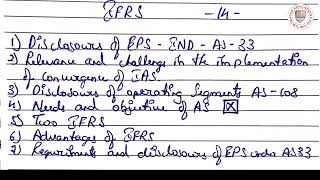 IFRS -14-
1) Disclosures of EPS - IND - AS - 33
2) Relevance and challenges in the implementation
of convergence of IAS.
3) Disclosures of operating Segments AS-108
4) Needs and objective of AS
5) Two IFRS
6) Advantages of IFRS
7) Requirements and disclosures of EPS under AS33